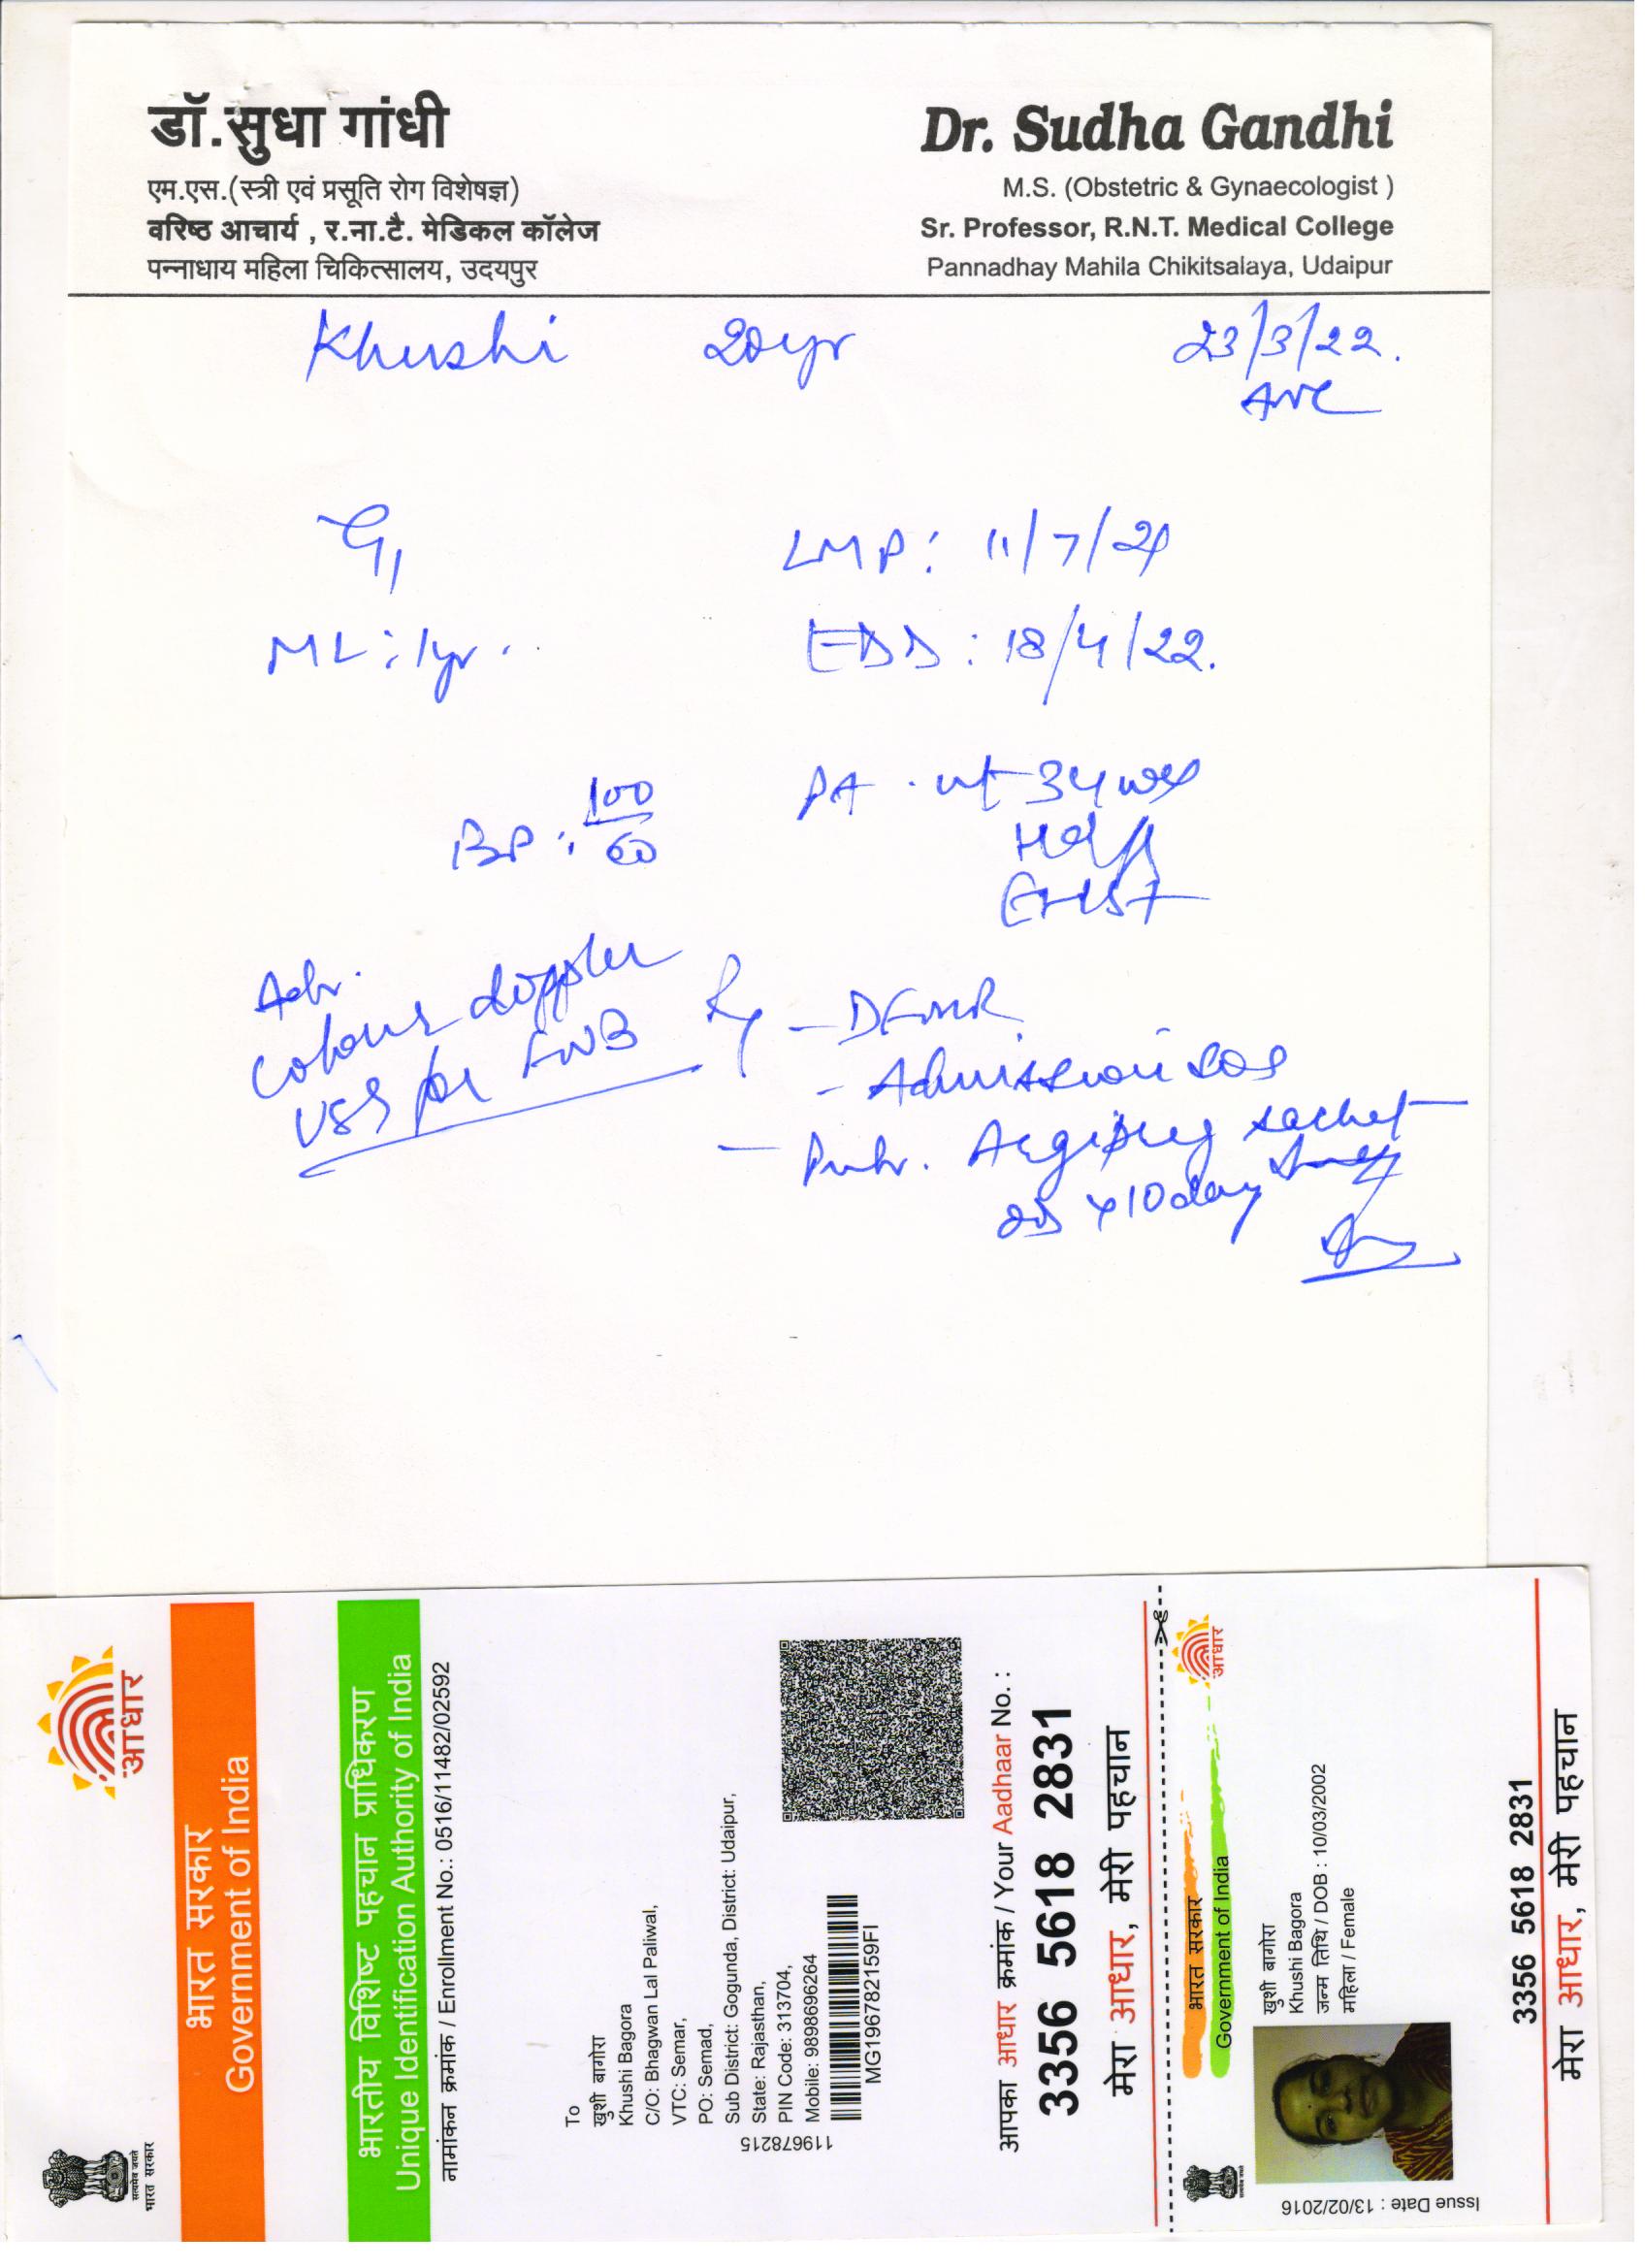 डॉ.सुधा गांधी
एम.एस.(स्त्री एवं प्रसूति रोग विशेषज्ञ)
वरिष्ठ आचार्य , र.ना.टै. मेडिकल कॉलेज
पन्नाधाय महिला चिकित्सालय, उदयपुर
Dr. Sudha Gandhi
M.S. (Obstetric & Gynaecologist )
Sr. Professor, R.N.T. Medical College
Pannadhay Mahila Chikitsalaya, Udaipur
Khushi 20yr 23/3/22.
ANC
G1 LMP: 11/7/21
ML: 1yr. EDD: 18/4/22.
BP: 100/60
PA . ut 34 wks
FHS+
Adv.
colour doppler
USG for FWB
Rx
- DFMR
- Admission sos
- sachet
OD x 10 day
आधार
भारत सरकार
Government of India
भारतीय विशिष्ट पहचान प्राधिकरण
Unique Identification Authority of India
सत्यमेव जयते
भारत सरकार
नामांकन क्रमांक / Enrollment No.: 0516/11482/02592
To
खुशी बागोरा
Khushi Bagora
C/O: Bhagwan Lal Paliwal,
VTC: Semar,
PO: Semad,
Sub District: Gogunda, District: Udaipur,
State: Rajasthan,
PIN Code: 313704,
Mobile: 9898696264
119678215
MG196782159FI
आपका आधार क्रमांक / Your Aadhaar No. :
3356 5618 2831
मेरा आधार, मेरी पहचान
भारत सरकार
Government of India
आधार
खुशी बागोरा
Khushi Bagora
जन्म तिथि / DOB : 10/03/2002
महिला / Female
Issue Date : 13/02/2016
3356 5618 2831
मेरा आधार, मेरी पहचान